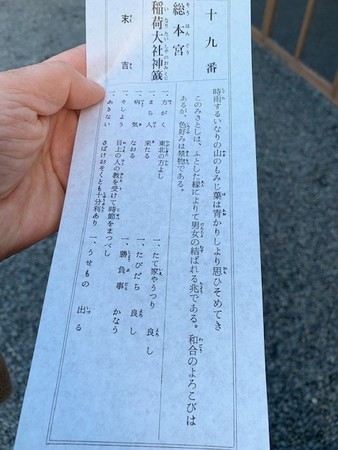 十九番
総本宮
稲荷大社神籤
末吉
時雨するいなりの山のもみじ葉は青かりしより思ひそめてき
このみさとしは、ふとした縁によりて男女の結ばれる兆である。和合のよろこびは
あるが、色好みは禁物である。
一、方がく 東北の方よし 一、たて家やうつり 良し
一、まち人 来たる 一、たびだち 良し
一、病気 なおる 一、勝負事 かなう
一、そしよう 目上の人の教を受けて時節をまつべし
一、あきない さばけおそくとも十分利あり 一、うせもの 出る